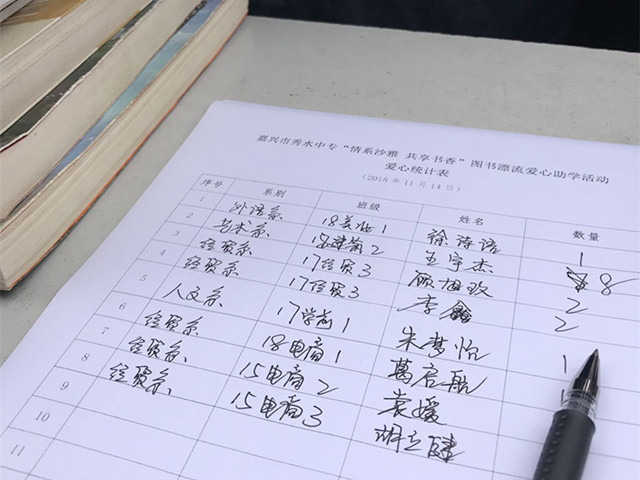 嘉兴市秀水中专“情系沙雅 共享书香”图书漂流爱心助学活动
爱心统计表
（2018年11月14日）
序号 系别 班级 姓名 数量
1 外语系 18美术1 徐诗语 1
2 艺术系 18建筑2 王宇杰 8
3 经贸系 17经贸3 顾旭玫 2
4 经贸系 17经贸3 李鑫 2
5 人文系 17学前1 朱梦怡
6 经贸系 18电商1 葛启航 1
7 经贸系 15电商2 袁媛
8 经贸系 15电商3 胡立
9
10
11